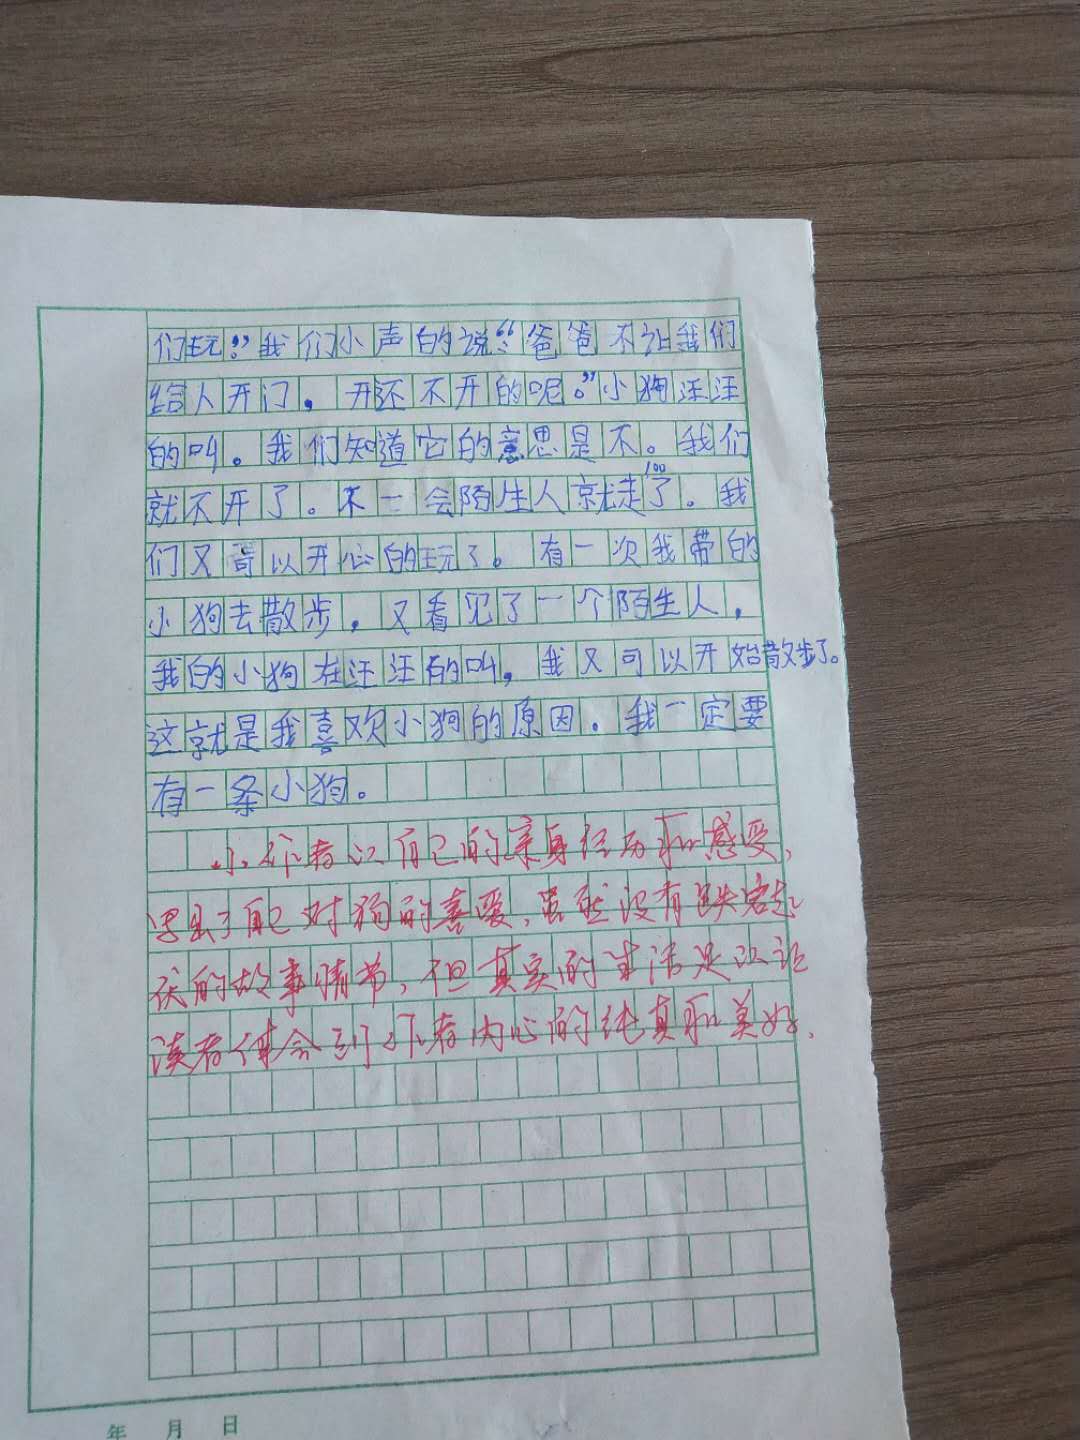 们玩。”我们小声的说：“爸爸不让我们
给人开门，开还不开的呢。”小狗汪汪
的叫。我们知道它的意思是不。我们
就不开了。不一会陌生人就走了。我
100
们又可以开心的玩了。有一次我带的
小狗去散步，又看见了一个陌生人，
我的小狗在汪汪的叫，我又可以开始散步了。
这就是我喜欢小狗的原因。我一定要
有一条小狗。
小作者以自己的亲身经历和感受，
写出了自己对狗的喜爱，虽然没有跌宕起
伏的故事情节，但真实的生活足以让
读者体会到作者内心的纯真和美好.
年 月 日